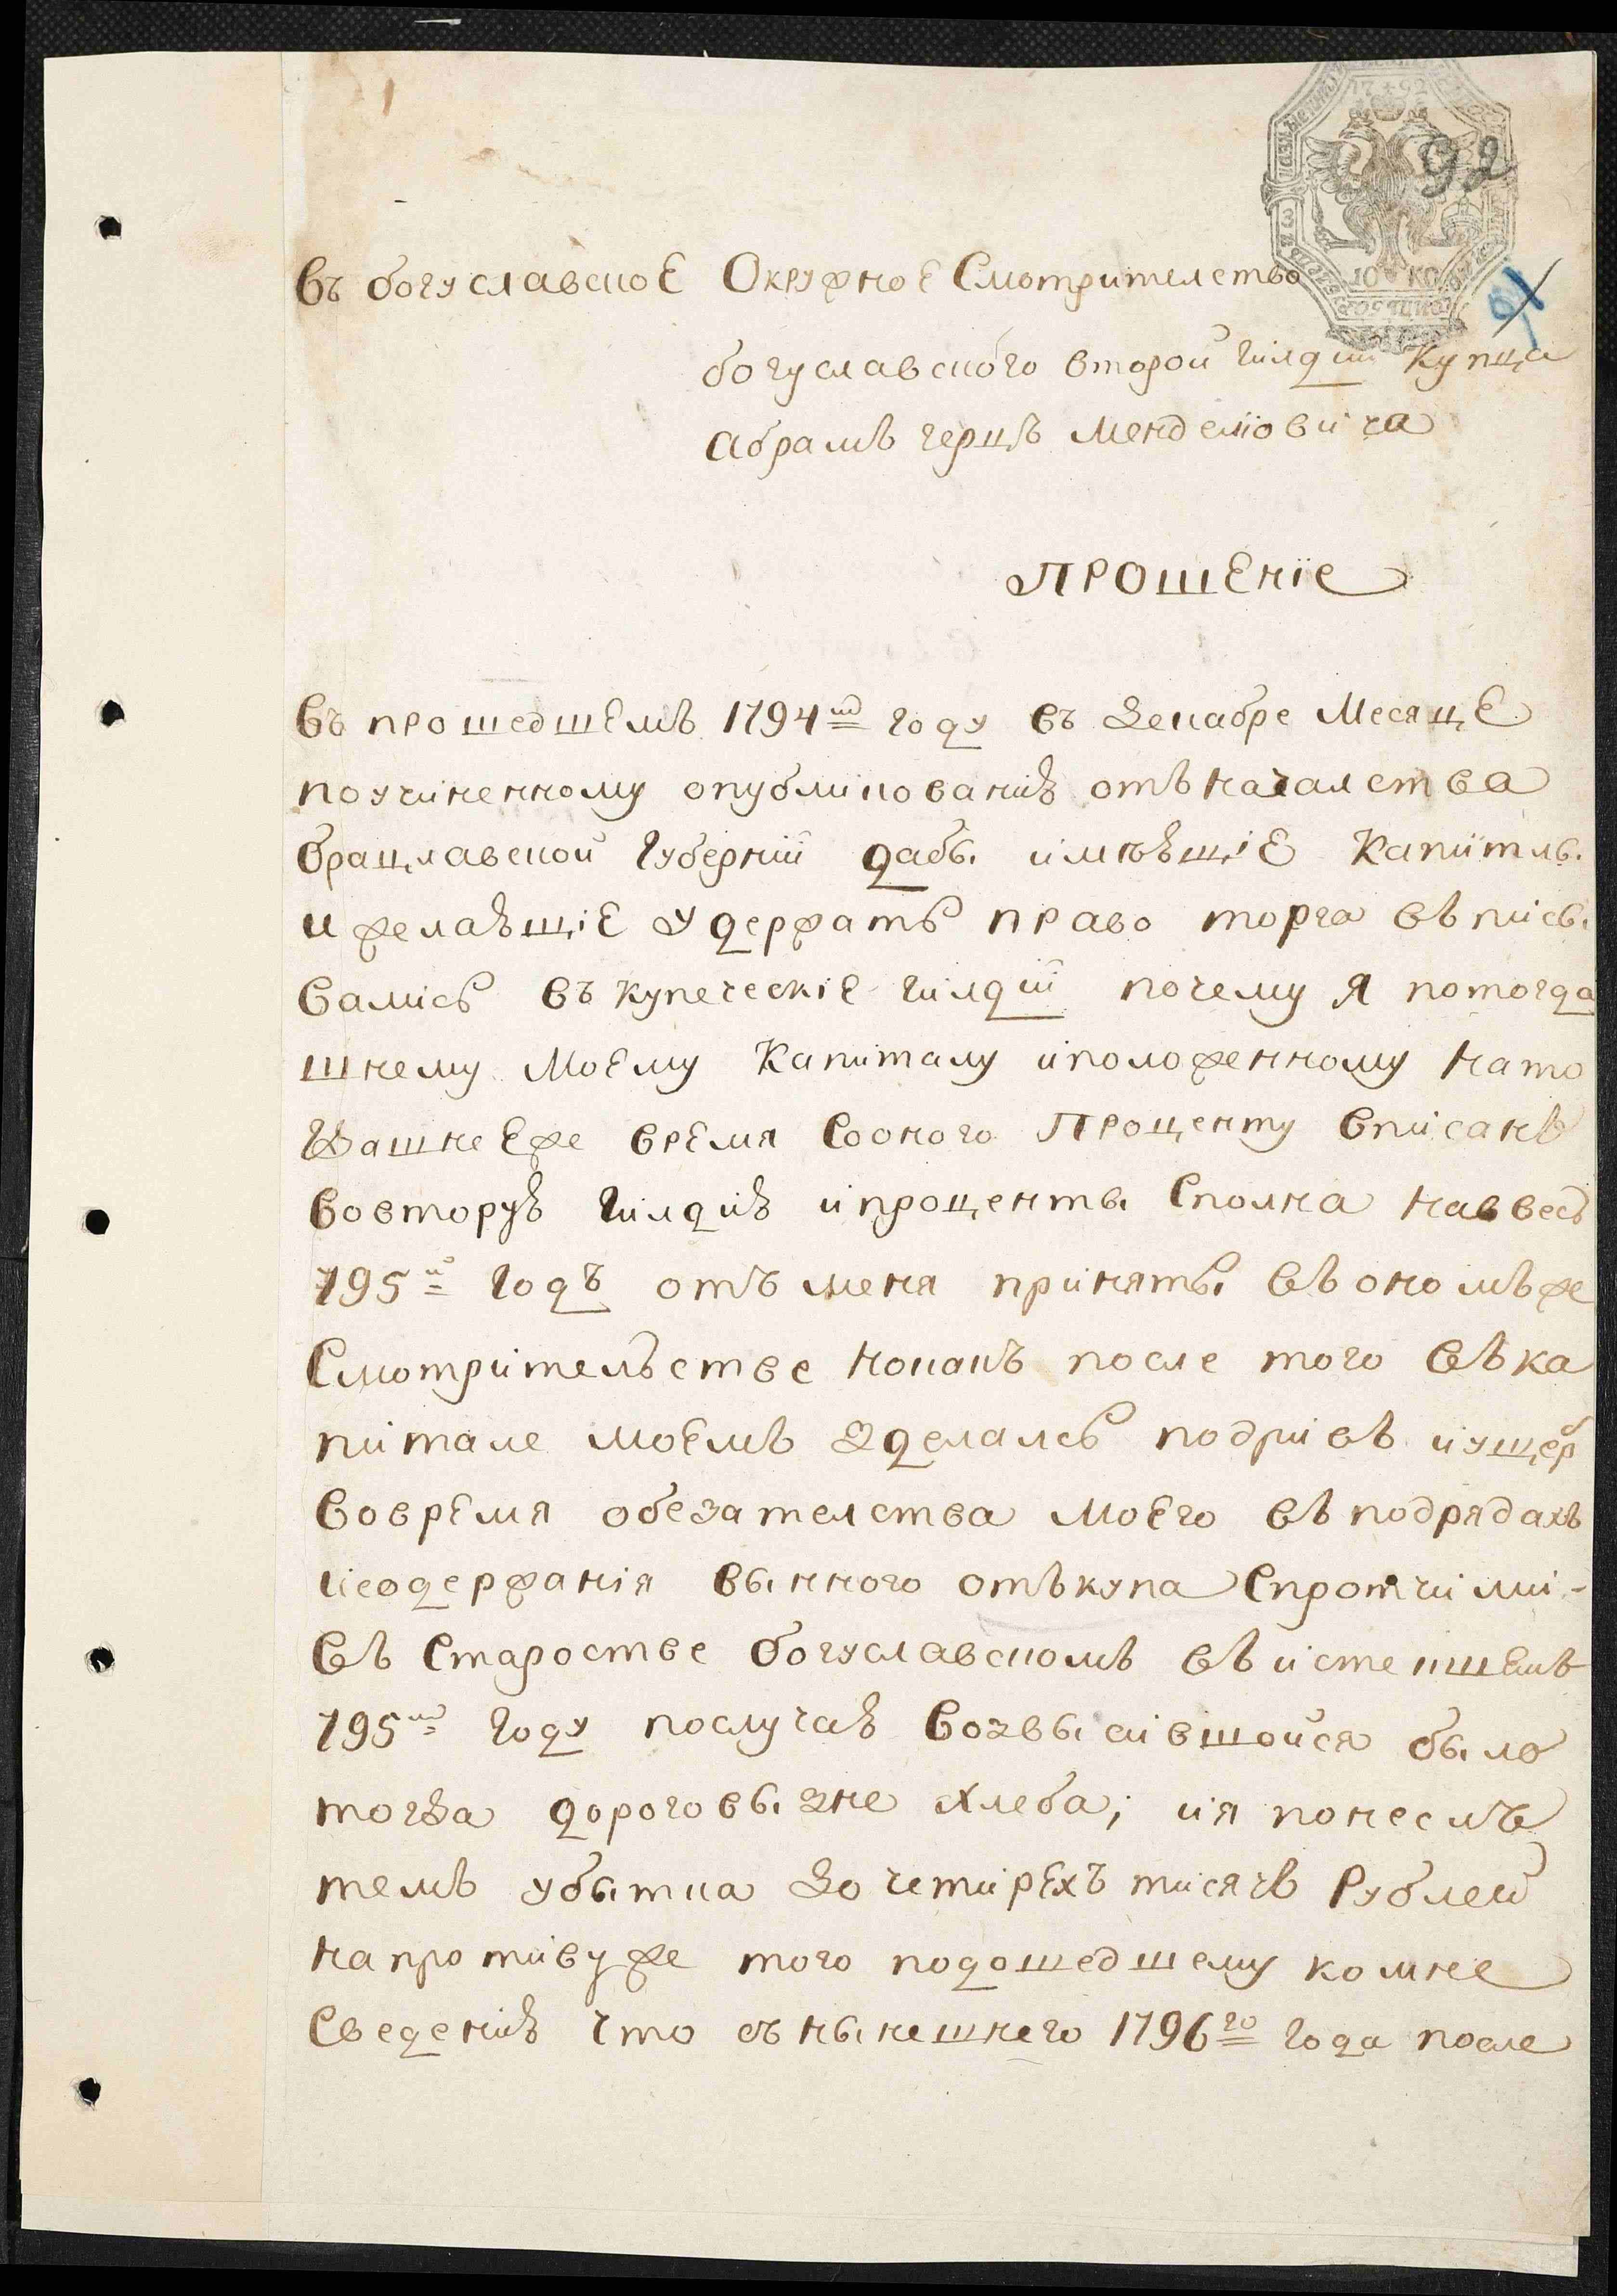 17 92
92
10 КО
91
Въ богуславское Окружное Смотрителство
богуславского второй гилдии Купца
Абрамъ герцъ Менделіовича
ПРОШЕНіе
Въ прошедшемъ 1794мъ году въ декабре Месяце
поучиненному опубликованию отъначалства
брацлавской Губернии дабы имеющіе Капиталы
и желающіе удержать право торга вънисы
вались въ купеческіе гилдии почему Я потогда
шнему моему Капиталу иположенному нато
дашнееже время Сооного Проценту вписанъ
вовторую гилдию ипроценты Сполна наввесь
795й годъ отъ меня приняты въономъже
Смотрительстве Нокакъ после того въка
питале моемъ зделалсь подривъ иущерб
вовремя обезателства моего въподрядахъ
исодержания вынного отъкупа Спротчими-
въ Старостве богуславскомъ въистекшемъ
795мъ году послучаю возвысившойся было
тогда дороговызне хлеба; ия понеслъ
темъ убытка до четирехъ тисячъ Рублей
напротивуже того подошедшему комне
Сведению что сънынешнего 1796го года после